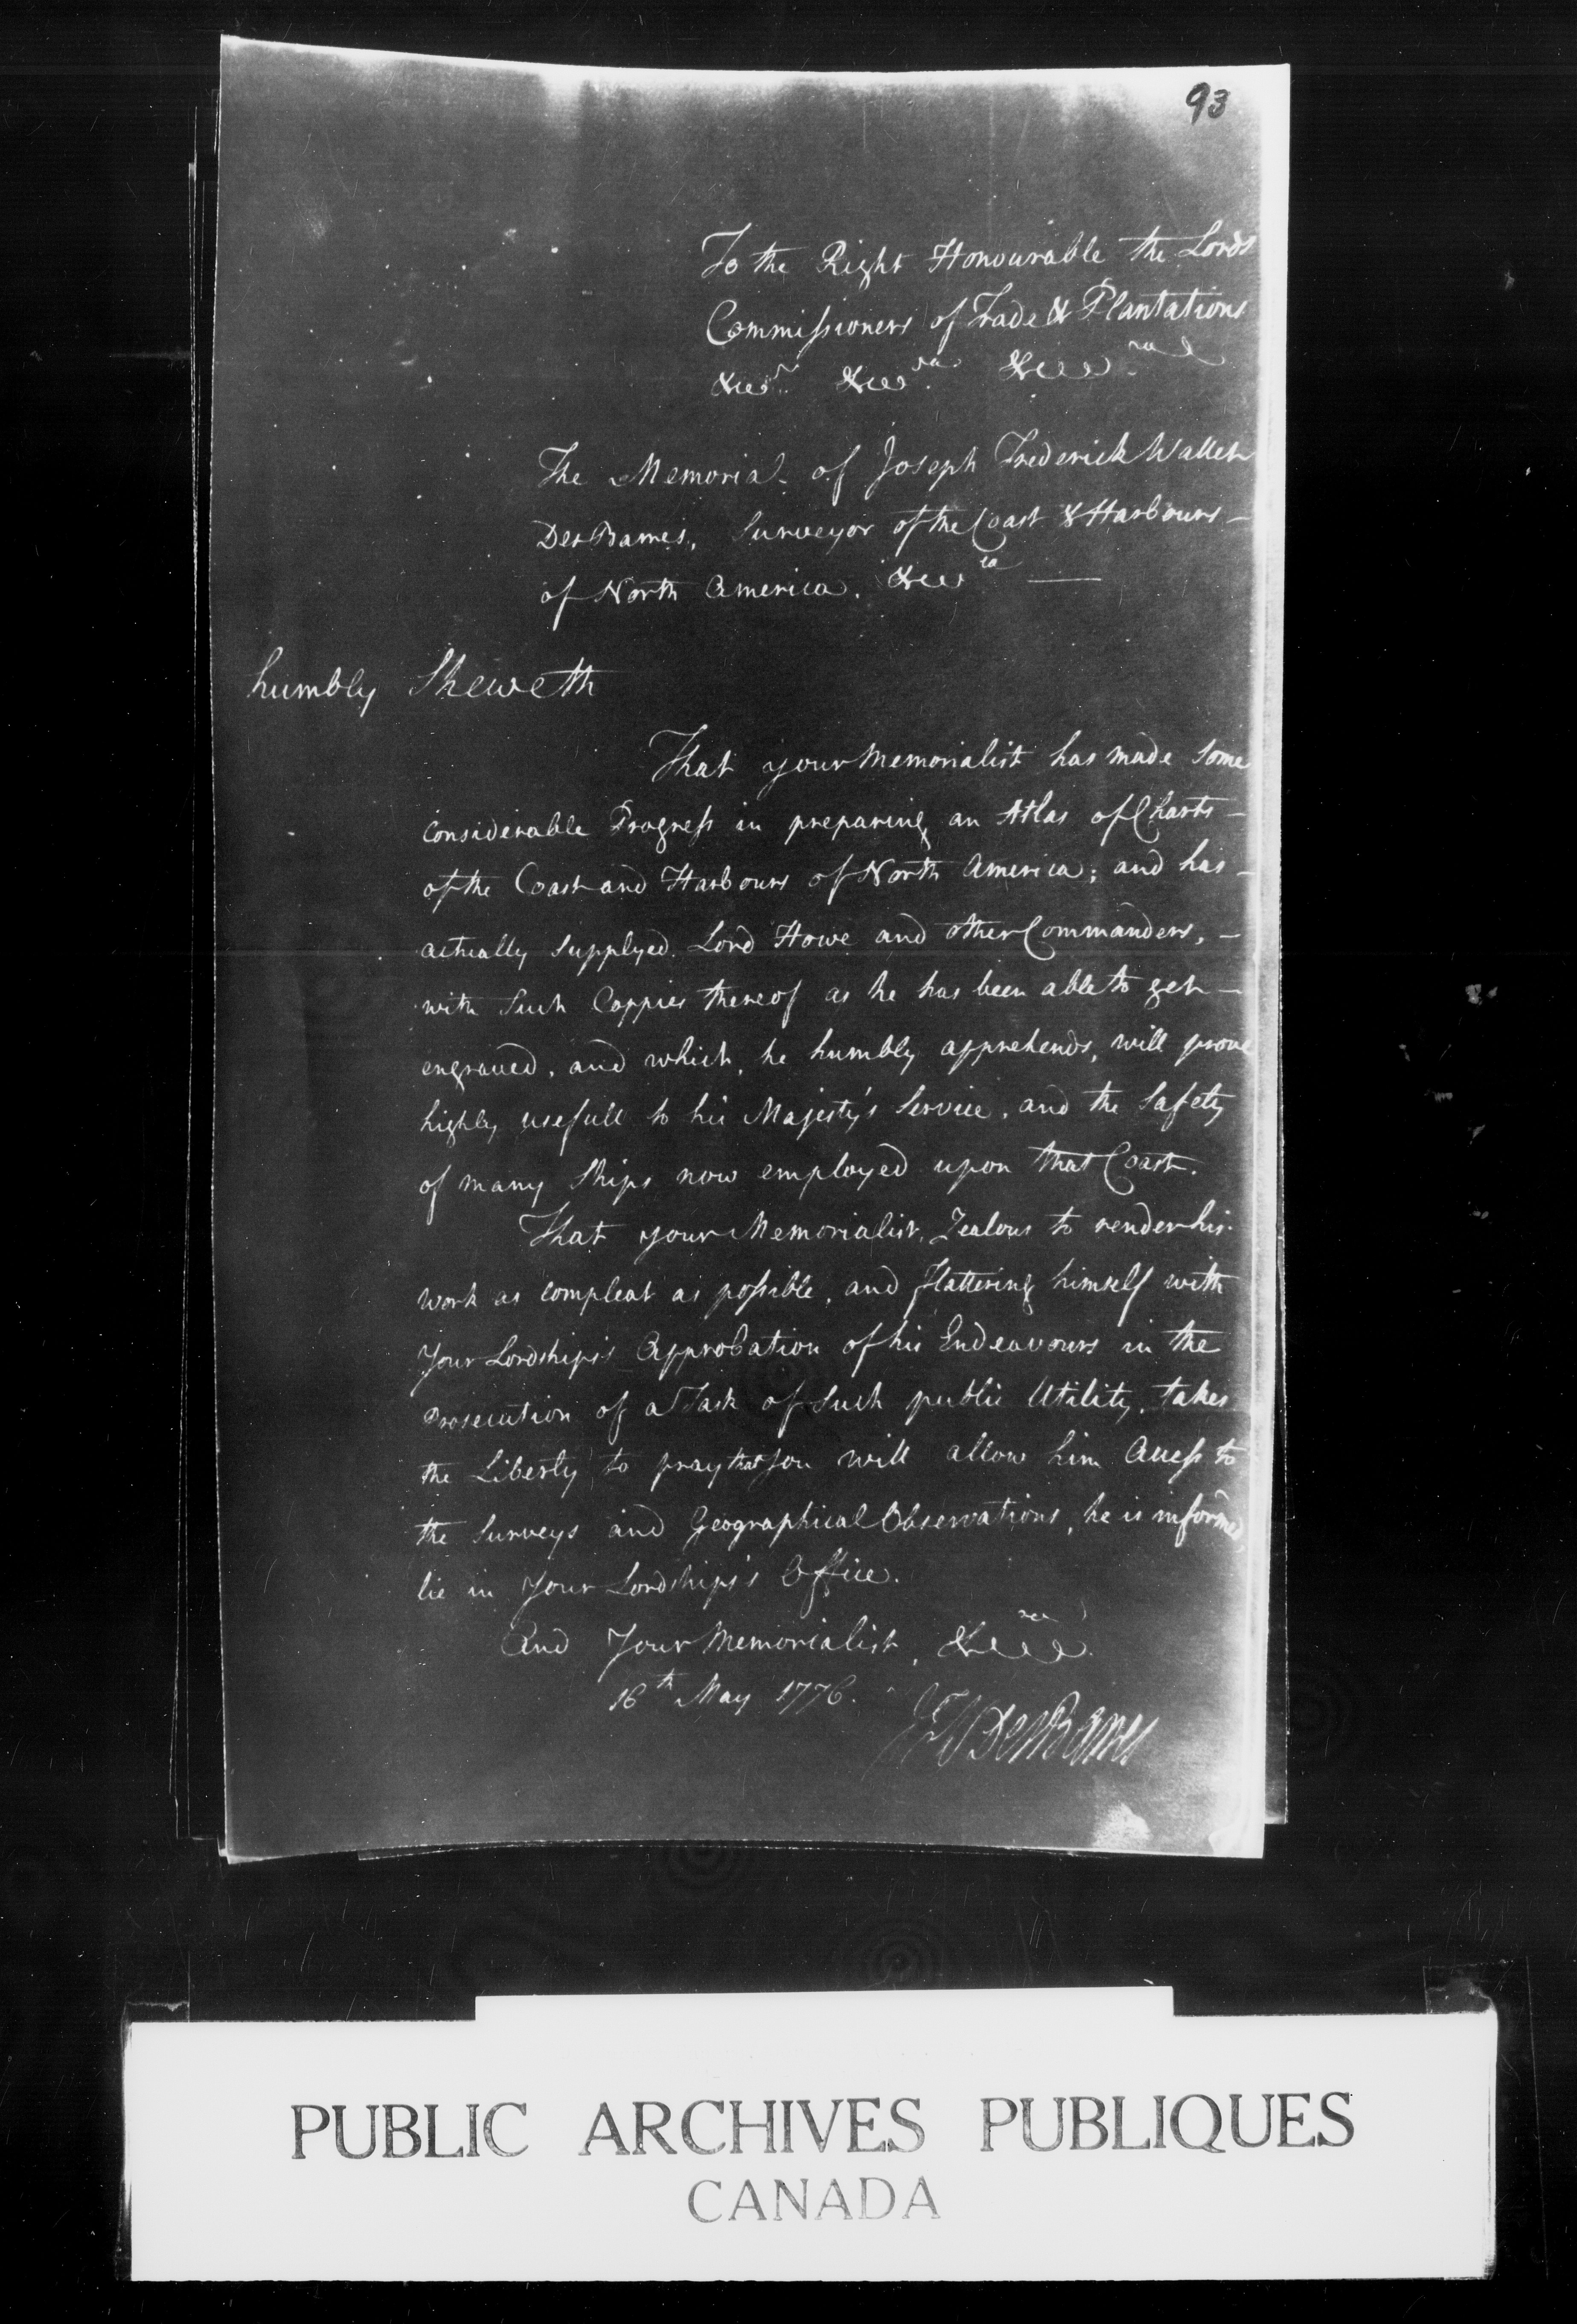 93
To the Right Honourable the Lords
Commissioners of Trade & Plantations
&ca &ca &ca
The Memorial of Joseph Frederick Wallet
DesBarres, Surveyor of the Coast & Harbours –
of North America. &ca —
humbly Sheweth
That your Memorialist has made Some
Considerable Progress in preparing an Atlas of Charts –
of the Coast and Harbours of North America; and has –
actually Supplyed Lord Howe and other Commanders, –
with Such Coppies thereof as he has been able to get –
engraved, and which, he humbly apprehends, will prove
highly usefull to his Majesty's Service, and the Safety
of many Ships now employed upon that Coast.
That your Memorialist, Zealous to render his
work as compleat as possible, and flattering himself with
Your Lordships's Approbation of his Endeavours in the
Prosecution of a Task of Such public Utility, takes
the Liberty to pray that you will allow him Access to
the Surveys and Geographical Observations, he is informed,
lie in Your Lordships's Office.
And Your Memorialist, &ca
16th May 1776.
JFW DesBarres
PUBLIC ARCHIVES PUBLIQUES
CANADA